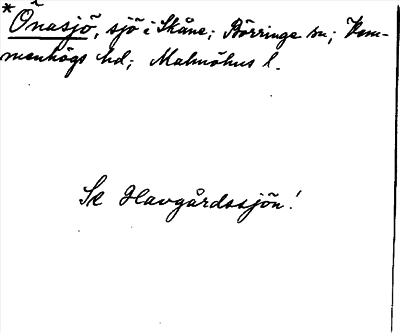 *Önasjö, sjö i Skåne; Börringe sn; Vem-
menhögs hd; Malmöhus l.
Se Havgårdssjön!